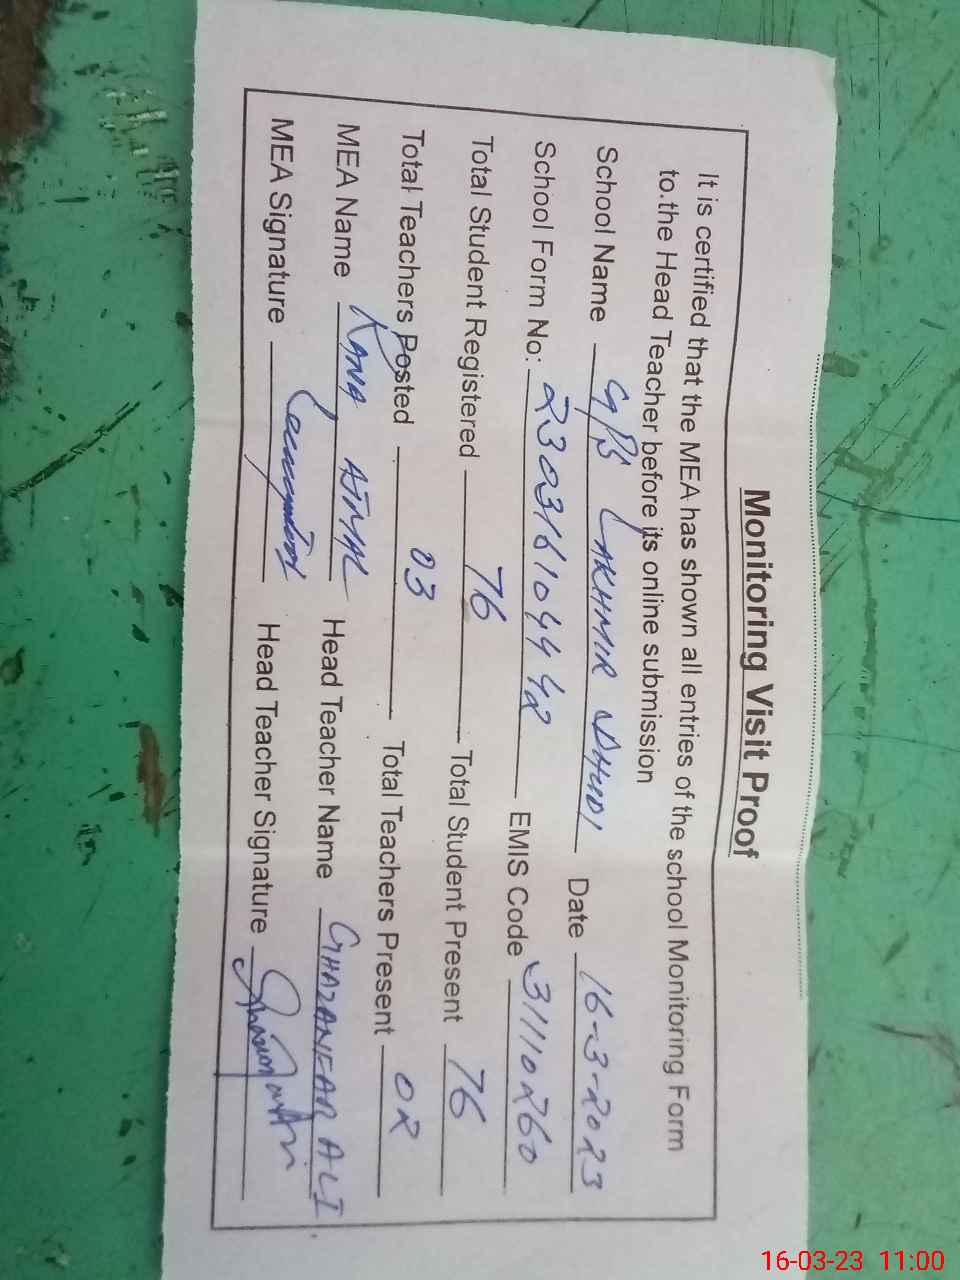 Monitoring Visit Proof
It is certified that the MEA has shown all entries of the school Monitoring Form
to.the Head Teacher before its online submission
School Name G/PS LAKHMIR DHUDI Date 16-3-2023
School Form No: 230316104442 EMIS Code 31110260
Total Student Registered 76 Total Student Present 76
Total Teachers Posted 03 Total Teachers Present 02
MEA Name RANA AJMAL Head Teacher Name GHAZANFAR ALI
MEA Signature Head Teacher Signature
16-03-23 11:00